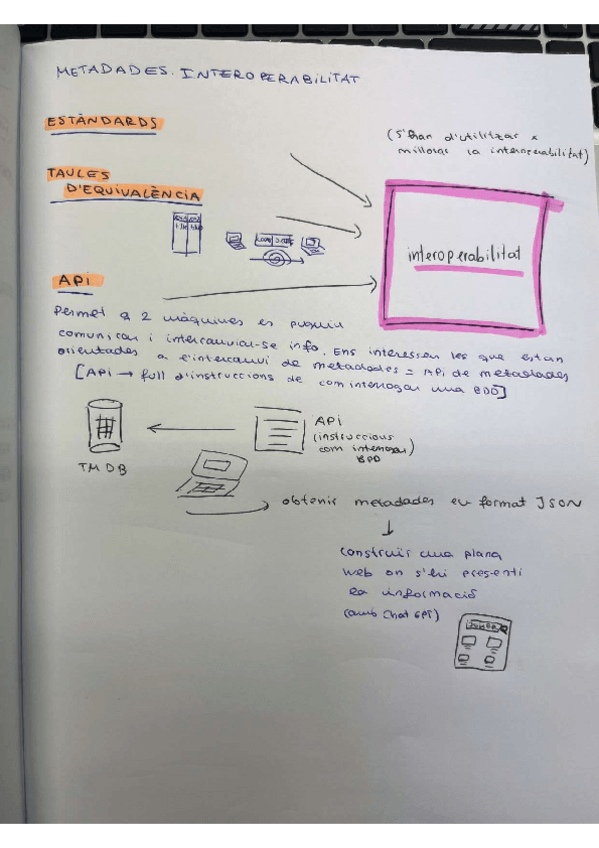 METADADES. INTEROPERABILITAT
ESTÀNDARDS
(S'han d'utilitzar x
millorar la interoperabilitat)
TAULES
D'EQUIVALÈNCIA
interoperabilitat
API
Permet q 2 màquines es puguin
comunicar i intercanviar-se info. Ens interessen les que estan
orientades a l'intercanvi de metadades = API de metadades
[API → full d'instruccions de com interrogar una BDD]
API
(instruccions
com interrogar)
BDD
TMDB
obtenir metadades en format JSON
construir una plana
web on s'hi presenti
la informació
(amb Chat GPT)